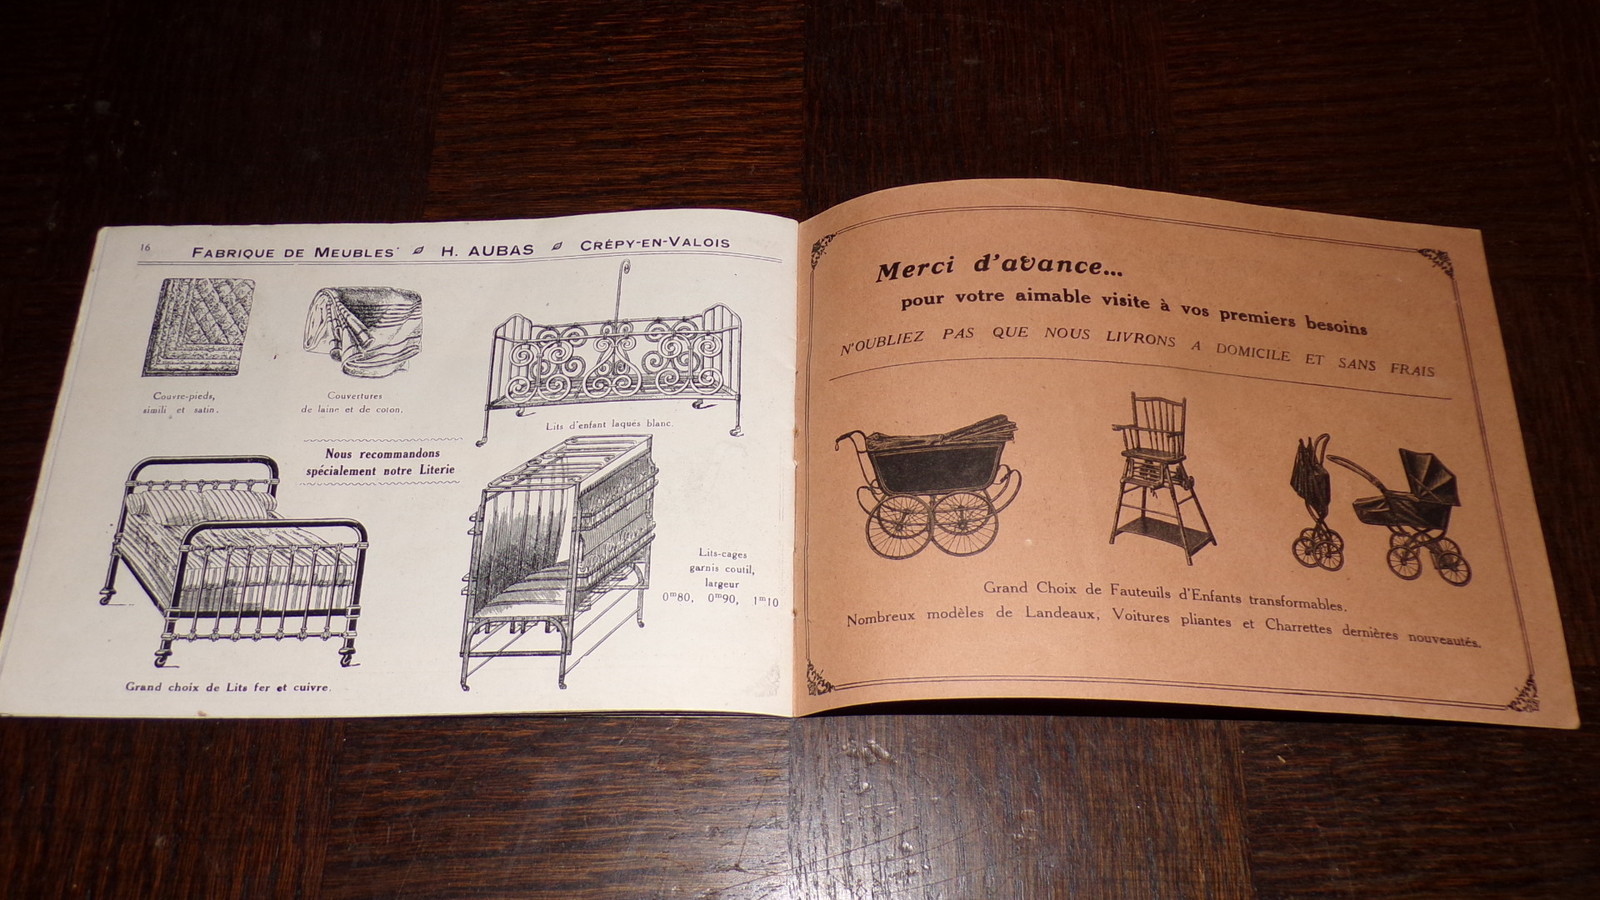 16
FABRIQUE DE MEUBLES H. AUBAS CRÉPY-EN-VALOIS
Couvre-pieds,
simili et satin.
Couvertures
de laine et de coton.
Lits d'enfant laqués blanc.
Nous recommandons
spécialement notre Literie
Lits-cages
garnis coutil,
largeur
0m80, 0m90, 1m10
Grand choix de Lits fer et cuivre.
Merci d'avance...
pour votre aimable visite à vos premiers besoins
N'OUBLIEZ PAS QUE NOUS LIVRONS A DOMICILE ET SANS FRAIS
Grand Choix de Fauteuils d'Enfants transformables.
Nombreux modèles de Landeaux, Voitures pliantes et Charrettes dernières nouveautés.